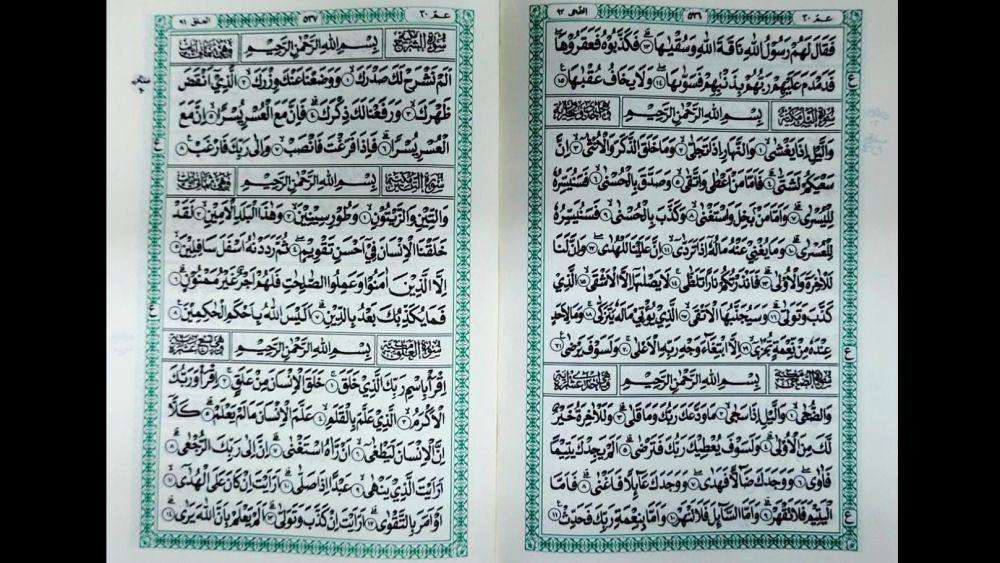 عمّ ٣٠ ٥٣٦ الضحى ٩٣
فَقَالَ لَهُمْ رَسُولُ اللّٰهِ نَاقَةَ اللّٰهِ وَسُقْيٰهَا ۝١٣ فَكَذَّبُوهُ فَعَقَرُوهَا
فَدَمْدَمَ عَلَيْهِمْ رَبُّهُمْ بِذَنْبِهِمْ فَسَوّٰىهَا ۝١٤ وَلَا يَخَافُ عُقْبٰهَا ۝١٥
بِسْمِ اللّٰهِ الرَّحْمٰنِ الرَّحِيْمِ
وَالَّيْلِ اِذَا يَغْشٰى ۝١ وَالنَّهَارِ اِذَا تَجَلّٰى ۝٢ وَمَا خَلَقَ الذَّكَرَ وَالْاُنْثٰى ۝٣ اِنَّ
سَعْيَكُمْ لَشَتّٰى ۝٤ فَاَمَّا مَنْ اَعْطٰى وَاتَّقٰى ۝٥ وَصَدَّقَ بِالْحُسْنٰى ۝٦ فَسَنُيَسِّرُهٗ
لِلْيُسْرٰى ۝٧ وَاَمَّا مَنْ بَخِلَ وَاسْتَغْنٰى ۝٨ وَكَذَّبَ بِالْحُسْنٰى ۝٩ فَسَنُيَسِّرُهٗ
لِلْعُسْرٰى ۝١٠ وَمَا يُغْنِيْ عَنْهُ مَالُهٗ اِذَا تَرَدّٰى ۝١١ اِنَّ عَلَيْنَا لَلْهُدٰى ۝١٢ وَاِنَّ لَنَا
لَلْاٰخِرَةَ وَالْاُوْلٰى ۝١٣ فَاَنْذَرْتُكُمْ نَارًا تَلَظّٰى ۝١٤ لَا يَصْلٰىهَا اِلَّا الْاَشْقَى ۝١٥ الَّذِيْ
كَذَّبَ وَتَوَلّٰى ۝١٦ وَسَيُجَنَّبُهَا الْاَتْقَى ۝١٧ الَّذِيْ يُؤْتِيْ مَالَهٗ يَتَزَكّٰى ۝١٨ وَمَا لِاَحَدٍ
عِنْدَهٗ مِنْ نِعْمَةٍ تُجْزٰى ۝١٩ اِلَّا ابْتِغَاءَ وَجْهِ رَبِّهِ الْاَعْلٰى ۝٢٠ وَلَسَوْفَ يَرْضٰى ۝٢١
بِسْمِ اللّٰهِ الرَّحْمٰنِ الرَّحِيْمِ
وَالضُّحٰى ۝١ وَالَّيْلِ اِذَا سَجٰى ۝٢ مَا وَدَّعَكَ رَبُّكَ وَمَا قَلٰى ۝٣ وَلَلْاٰخِرَةُ خَيْرٌ
لَّكَ مِنَ الْاُوْلٰى ۝٤ وَلَسَوْفَ يُعْطِيْكَ رَبُّكَ فَتَرْضٰى ۝٥ اَلَمْ يَجِدْكَ يَتِيْمًا
فَاٰوٰى ۝٦ وَوَجَدَكَ ضَالًّا فَهَدٰى ۝٧ وَوَجَدَكَ عَائِلًا فَاَغْنٰى ۝٨ فَاَمَّا
الْيَتِيْمَ فَلَا تَقْهَرْ ۝٩ وَاَمَّا السَّائِلَ فَلَا تَنْهَرْ ۝١٠ وَاَمَّا بِنِعْمَةِ رَبِّكَ فَحَدِّثْ ۝١١
عمّ ٣٠ ٥٣٧ العلق ٩٦
بِسْمِ اللّٰهِ الرَّحْمٰنِ الرَّحِيْمِ
اَلَمْ نَشْرَحْ لَكَ صَدْرَكَ ۝١ وَوَضَعْنَا عَنْكَ وِزْرَكَ ۝٢ الَّذِيْ اَنْقَضَ
ظَهْرَكَ ۝٣ وَرَفَعْنَا لَكَ ذِكْرَكَ ۝٤ فَاِنَّ مَعَ الْعُسْرِ يُسْرًا ۝٥ اِنَّ مَعَ
الْعُسْرِ يُسْرًا ۝٦ فَاِذَا فَرَغْتَ فَانْصَبْ ۝٧ وَاِلٰى رَبِّكَ فَارْغَبْ ۝٨
بِسْمِ اللّٰهِ الرَّحْمٰنِ الرَّحِيْمِ
وَالتِّيْنِ وَالزَّيْتُوْنِ ۝١ وَطُوْرِ سِيْنِيْنَ ۝٢ وَهٰذَا الْبَلَدِ الْاَمِيْنِ ۝٣ لَقَدْ
خَلَقْنَا الْاِنْسَانَ فِيْ اَحْسَنِ تَقْوِيْمٍ ۝٤ ثُمَّ رَدَدْنٰهُ اَسْفَلَ سَافِلِيْنَ ۝٥
اِلَّا الَّذِيْنَ اٰمَنُوْا وَعَمِلُوا الصّٰلِحٰتِ فَلَهُمْ اَجْرٌ غَيْرُ مَمْنُوْنٍ ۝٦
فَمَا يُكَذِّبُكَ بَعْدُ بِالدِّيْنِ ۝٧ اَلَيْسَ اللّٰهُ بِاَحْكَمِ الْحٰكِمِيْنَ ۝٨
بِسْمِ اللّٰهِ الرَّحْمٰنِ الرَّحِيْمِ
اِقْرَأْ بِاسْمِ رَبِّكَ الَّذِيْ خَلَقَ ۝١ خَلَقَ الْاِنْسَانَ مِنْ عَلَقٍ ۝٢ اِقْرَأْ وَرَبُّكَ
الْاَكْرَمُ ۝٣ الَّذِيْ عَلَّمَ بِالْقَلَمِ ۝٤ عَلَّمَ الْاِنْسَانَ مَا لَمْ يَعْلَمْ ۝٥ كَلَّا
اِنَّ الْاِنْسَانَ لَيَطْغٰى ۝٦ اَنْ رَّاٰهُ اسْتَغْنٰى ۝٧ اِنَّ اِلٰى رَبِّكَ الرُّجْعٰى ۝٨
اَرَاَيْتَ الَّذِيْ يَنْهٰى ۝٩ عَبْدًا اِذَا صَلّٰى ۝١٠ اَرَاَيْتَ اِنْ كَانَ عَلَى الْهُدٰى ۝١١
اَوْ اَمَرَ بِالتَّقْوٰى ۝١٢ اَرَاَيْتَ اِنْ كَذَّبَ وَتَوَلّٰى ۝١٣ اَلَمْ يَعْلَمْ بِاَنَّ اللّٰهَ يَرٰى ۝١٤